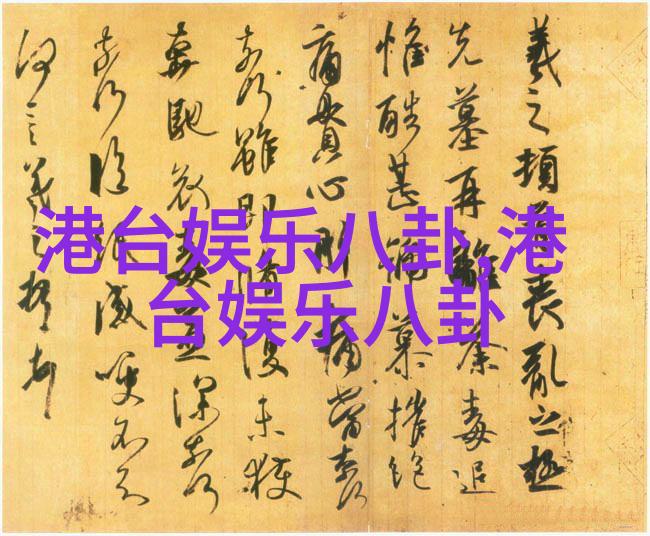 港台娱乐八卦,港
台娱乐八卦
羲之頓首喪亂之極
先墓再離荼毒追
惟酷甚號慕摧絶
痛貫心肝痛當奈何
奈何雖即脩復未獲
奔馳哀毒益深奈何
奈何臨紙感哽不知
何言羲之頓首